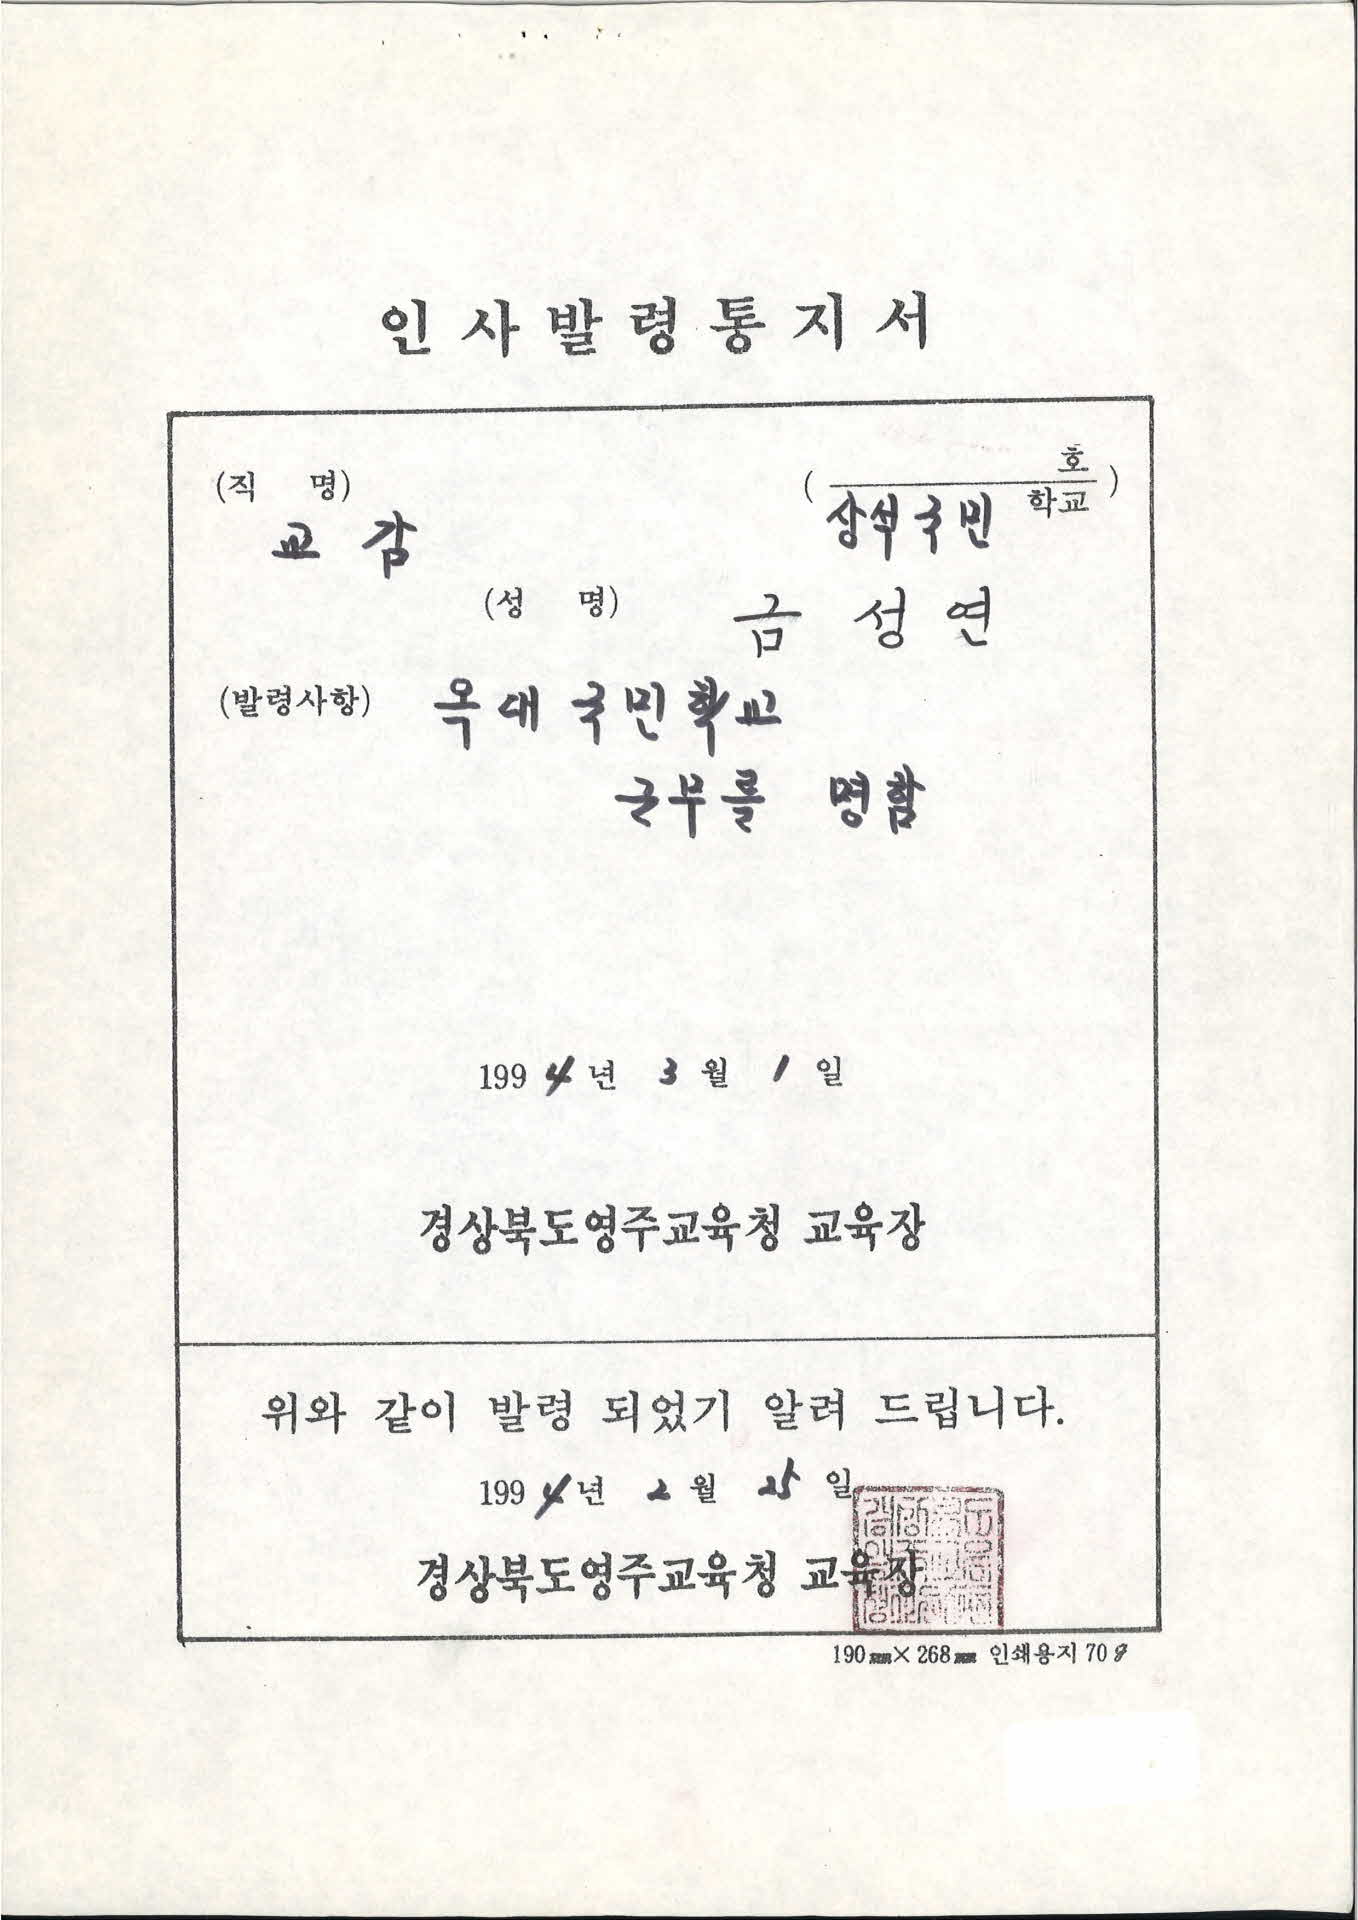 인사발령통지서
(직 명) ( 호
학교 )
교감 상석국민
(성 명) 금성연
(발령사항) 옥대국민학교
근무를 명함
1994년 3월 1일
경상북도영주교육청 교육장
위와 같이 발령 되었기 알려 드립니다.
1994년 2월 25일
경상북도영주교육청 교육장
190mm×268mm 인쇄용지 70g